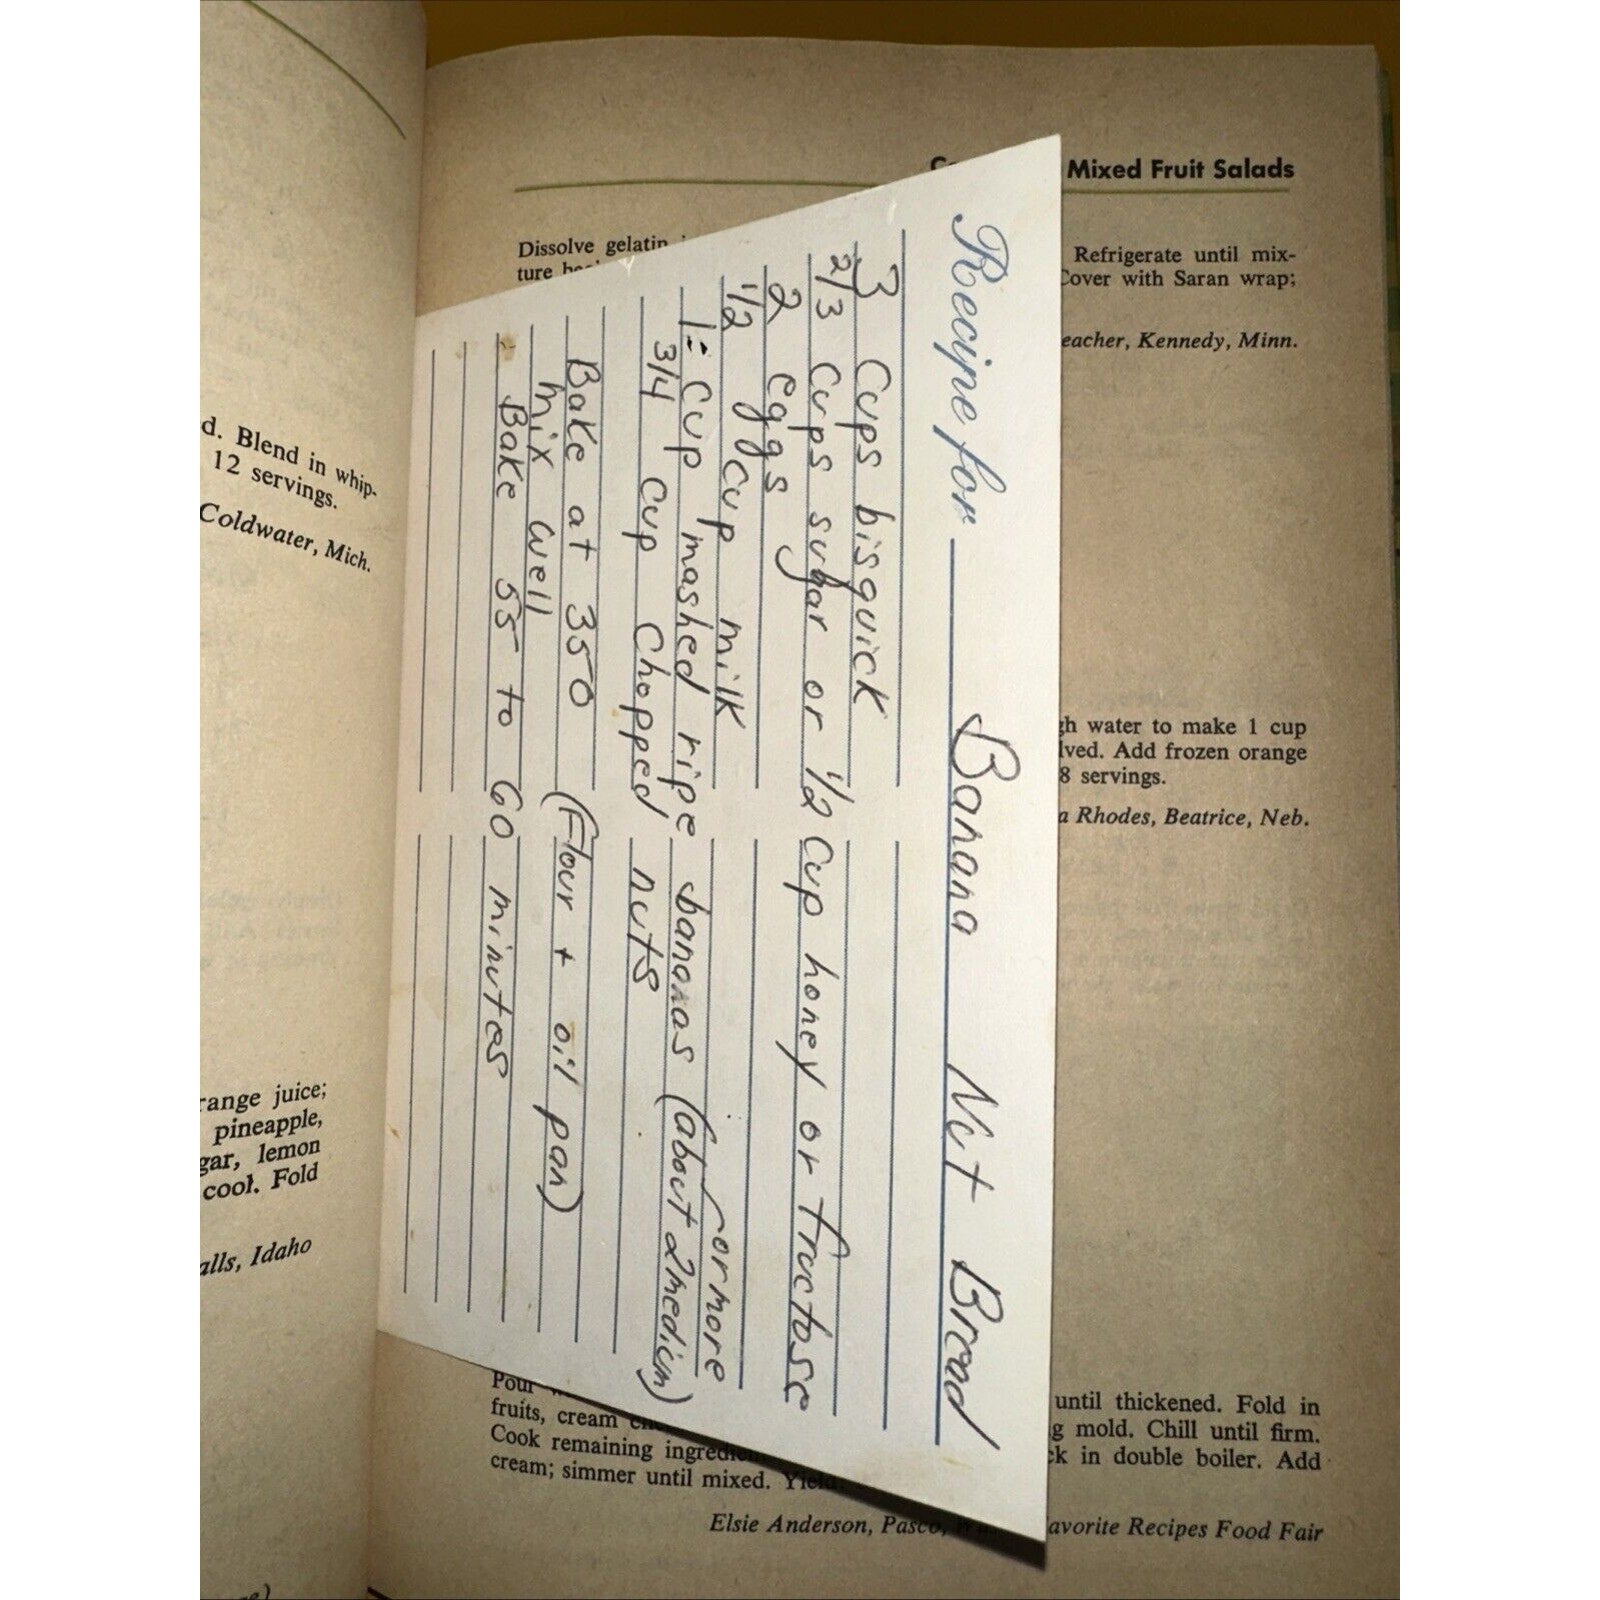 d. Blend in whip-
12 servings.
Coldwater, Mich.
range juice;
pineapple,
gar, lemon
cool. Fold
alls, Idaho
Mixed Fruit Salads
Dissolve gelatin
ture
Refrigerate until mix-
Cover with Saran wrap;
eacher, Kennedy, Minn.
gh water to make 1 cup
lved. Add frozen orange
8 servings.
a Rhodes, Beatrice, Neb.
Recipe for Banana Nut Bread
3 Cups bisquick
2/3 Cups sugar or 1/2 Cup honey or fructose
2 eggs
1/2 cup milk
or more
1 cup mashed ripe bananas (about 2 medium)
3/4 cup Chopped nuts
Bake at 350 (Flour + oil pan)
mix well
Bake 55 to 60 minutes
Pour
fruits, cream
Cook remaining
cream; simmer until mixed. Yield:
until thickened. Fold in
g mold. Chill until firm.
ck in double boiler. Add
Elsie Anderson, Pasco,
avorite Recipes Food Fair